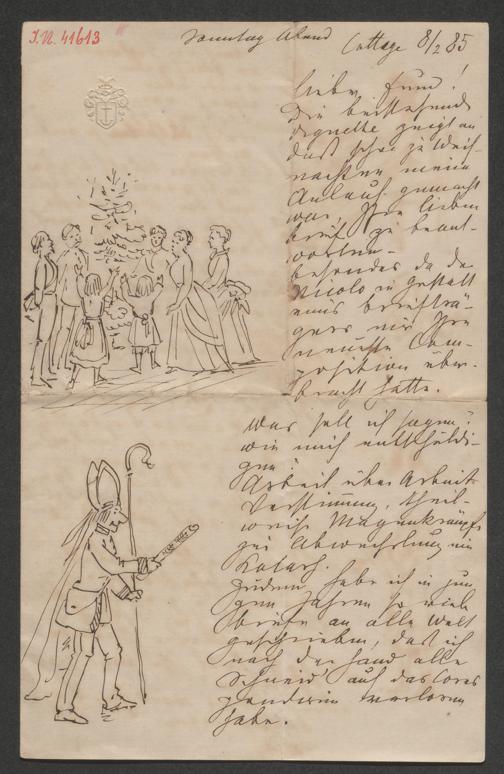 I.N. 41613
Sonntag Abend
Cottage 8/2 85
lieber Freund!
Die beistehende
Vignette zeigt an
daß schon zu Weih-
nachten, mein
Anlauf gemacht
war, Ihre lieben
Brief zu beant-
worten.
besonders da der
Nicolo in Gestalt
eines Briefträ-
gers mir Ihre
neueste Com-
position über-
bracht hatte.
Was soll ich sagen?
wie mich entschuldi-
gen?
Arbeit über Arbeit
Verstimmung, theil-
weise Magenkrämpfe
zur Abwechslung ein
Katarh.
Zudem habe ich in jun-
gen Jahren so viele
Briefe an alle Welt
geschrieben, daß ich
nach der Hand alle
Schneid auf das Corres
pondiren verloren
habe.